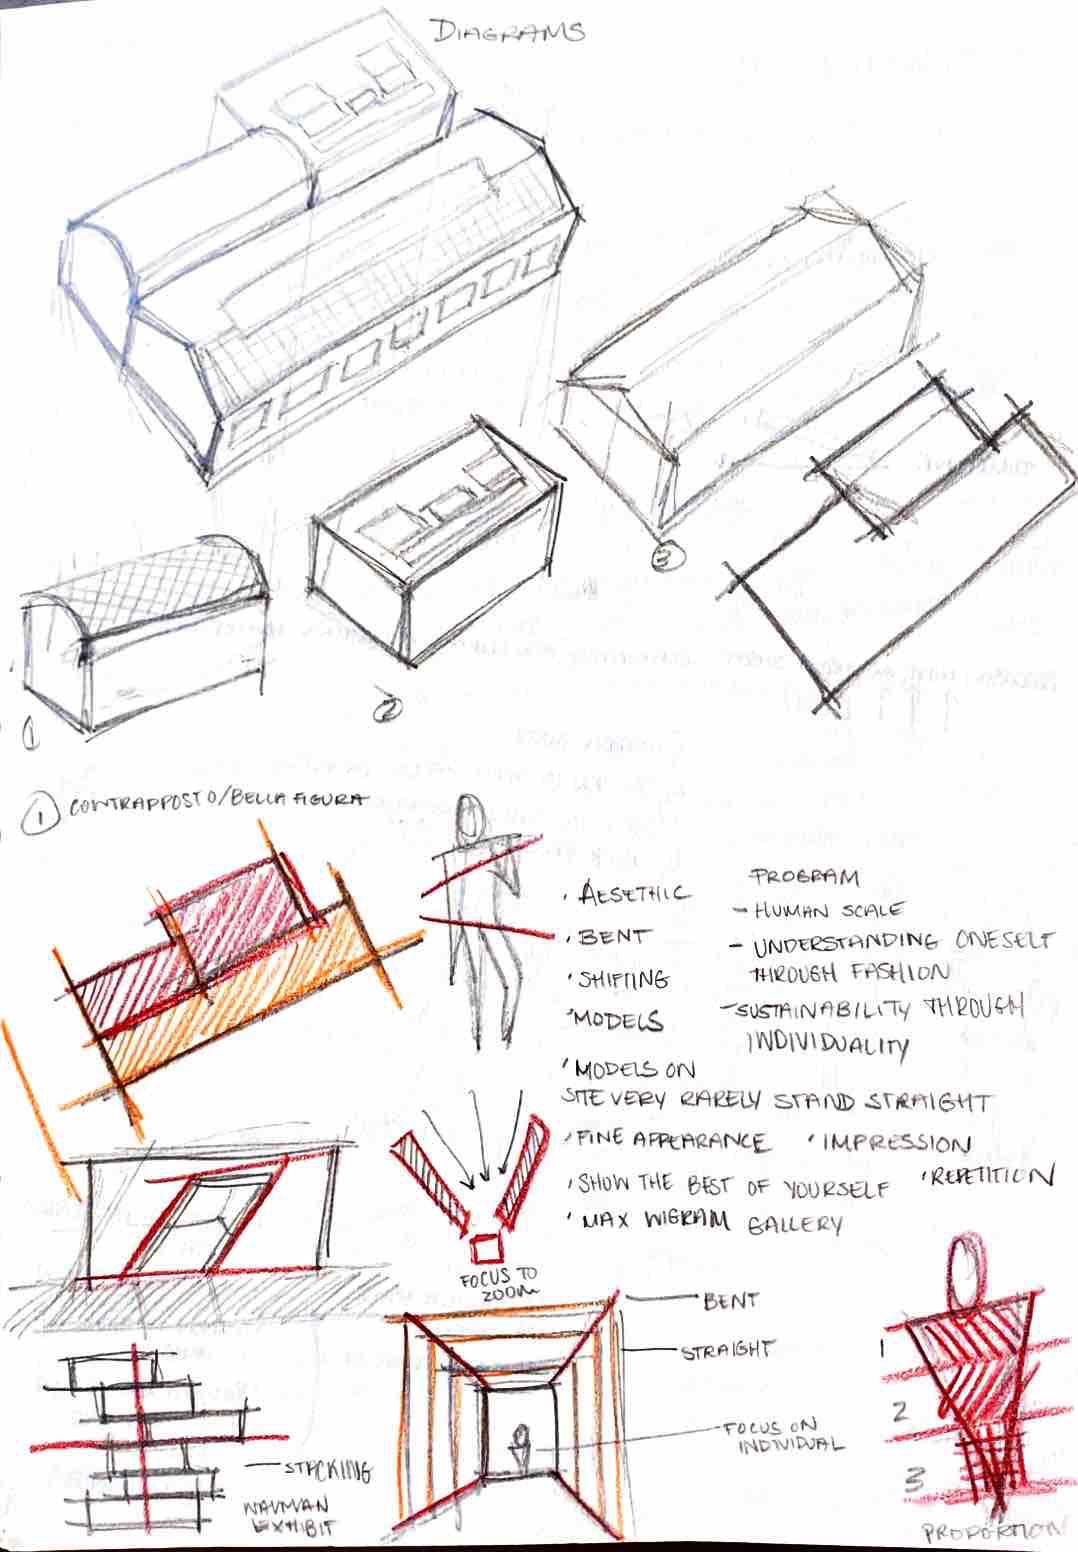 DIAGRAMS
1
2
3
1 CONTRAPPOSTO/BELLA FIGURA
• AESETHIC
• BENT
• SHIFTING
• MODELS
• MODELS ON
SITE VERY RARELY STAND STRAIGHT
• FINE APPEARANCE • IMPRESSION
• SHOW THE BEST OF YOURSELF • REPETITION
• MAX WIGRAM GALLERY
PROGRAM
- HUMAN SCALE
- UNDERSTANDING ONESELF
THROUGH FASHION
- SUSTAINABILITY THROUGH
INDIVIDUALITY
FOCUS TO
ZOOM
BENT
STRAIGHT
FOCUS ON
INDIVIDUAL
STACKING
EXHIBIT
1
2
3
PROPORTION